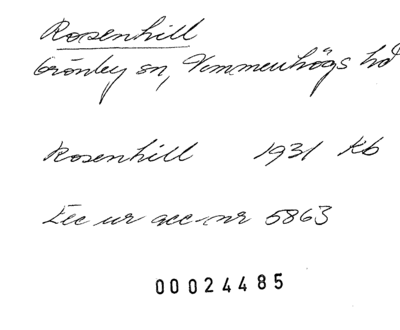 Rosenhill
Grönby sn, Vemmenhögs hd
Rosenhill 1931 Kb
Exc ur acc-nr 5863
00024485